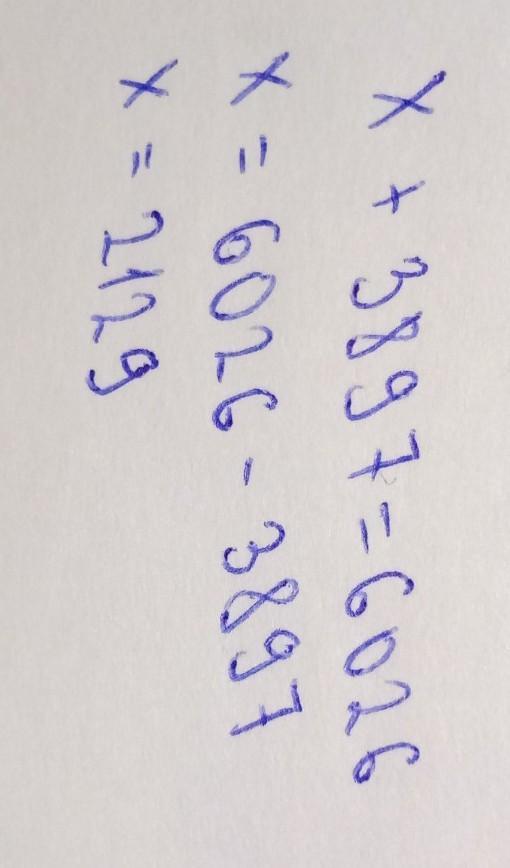 x + 3897 = 6026
x = 6026 - 3897
x = 2129